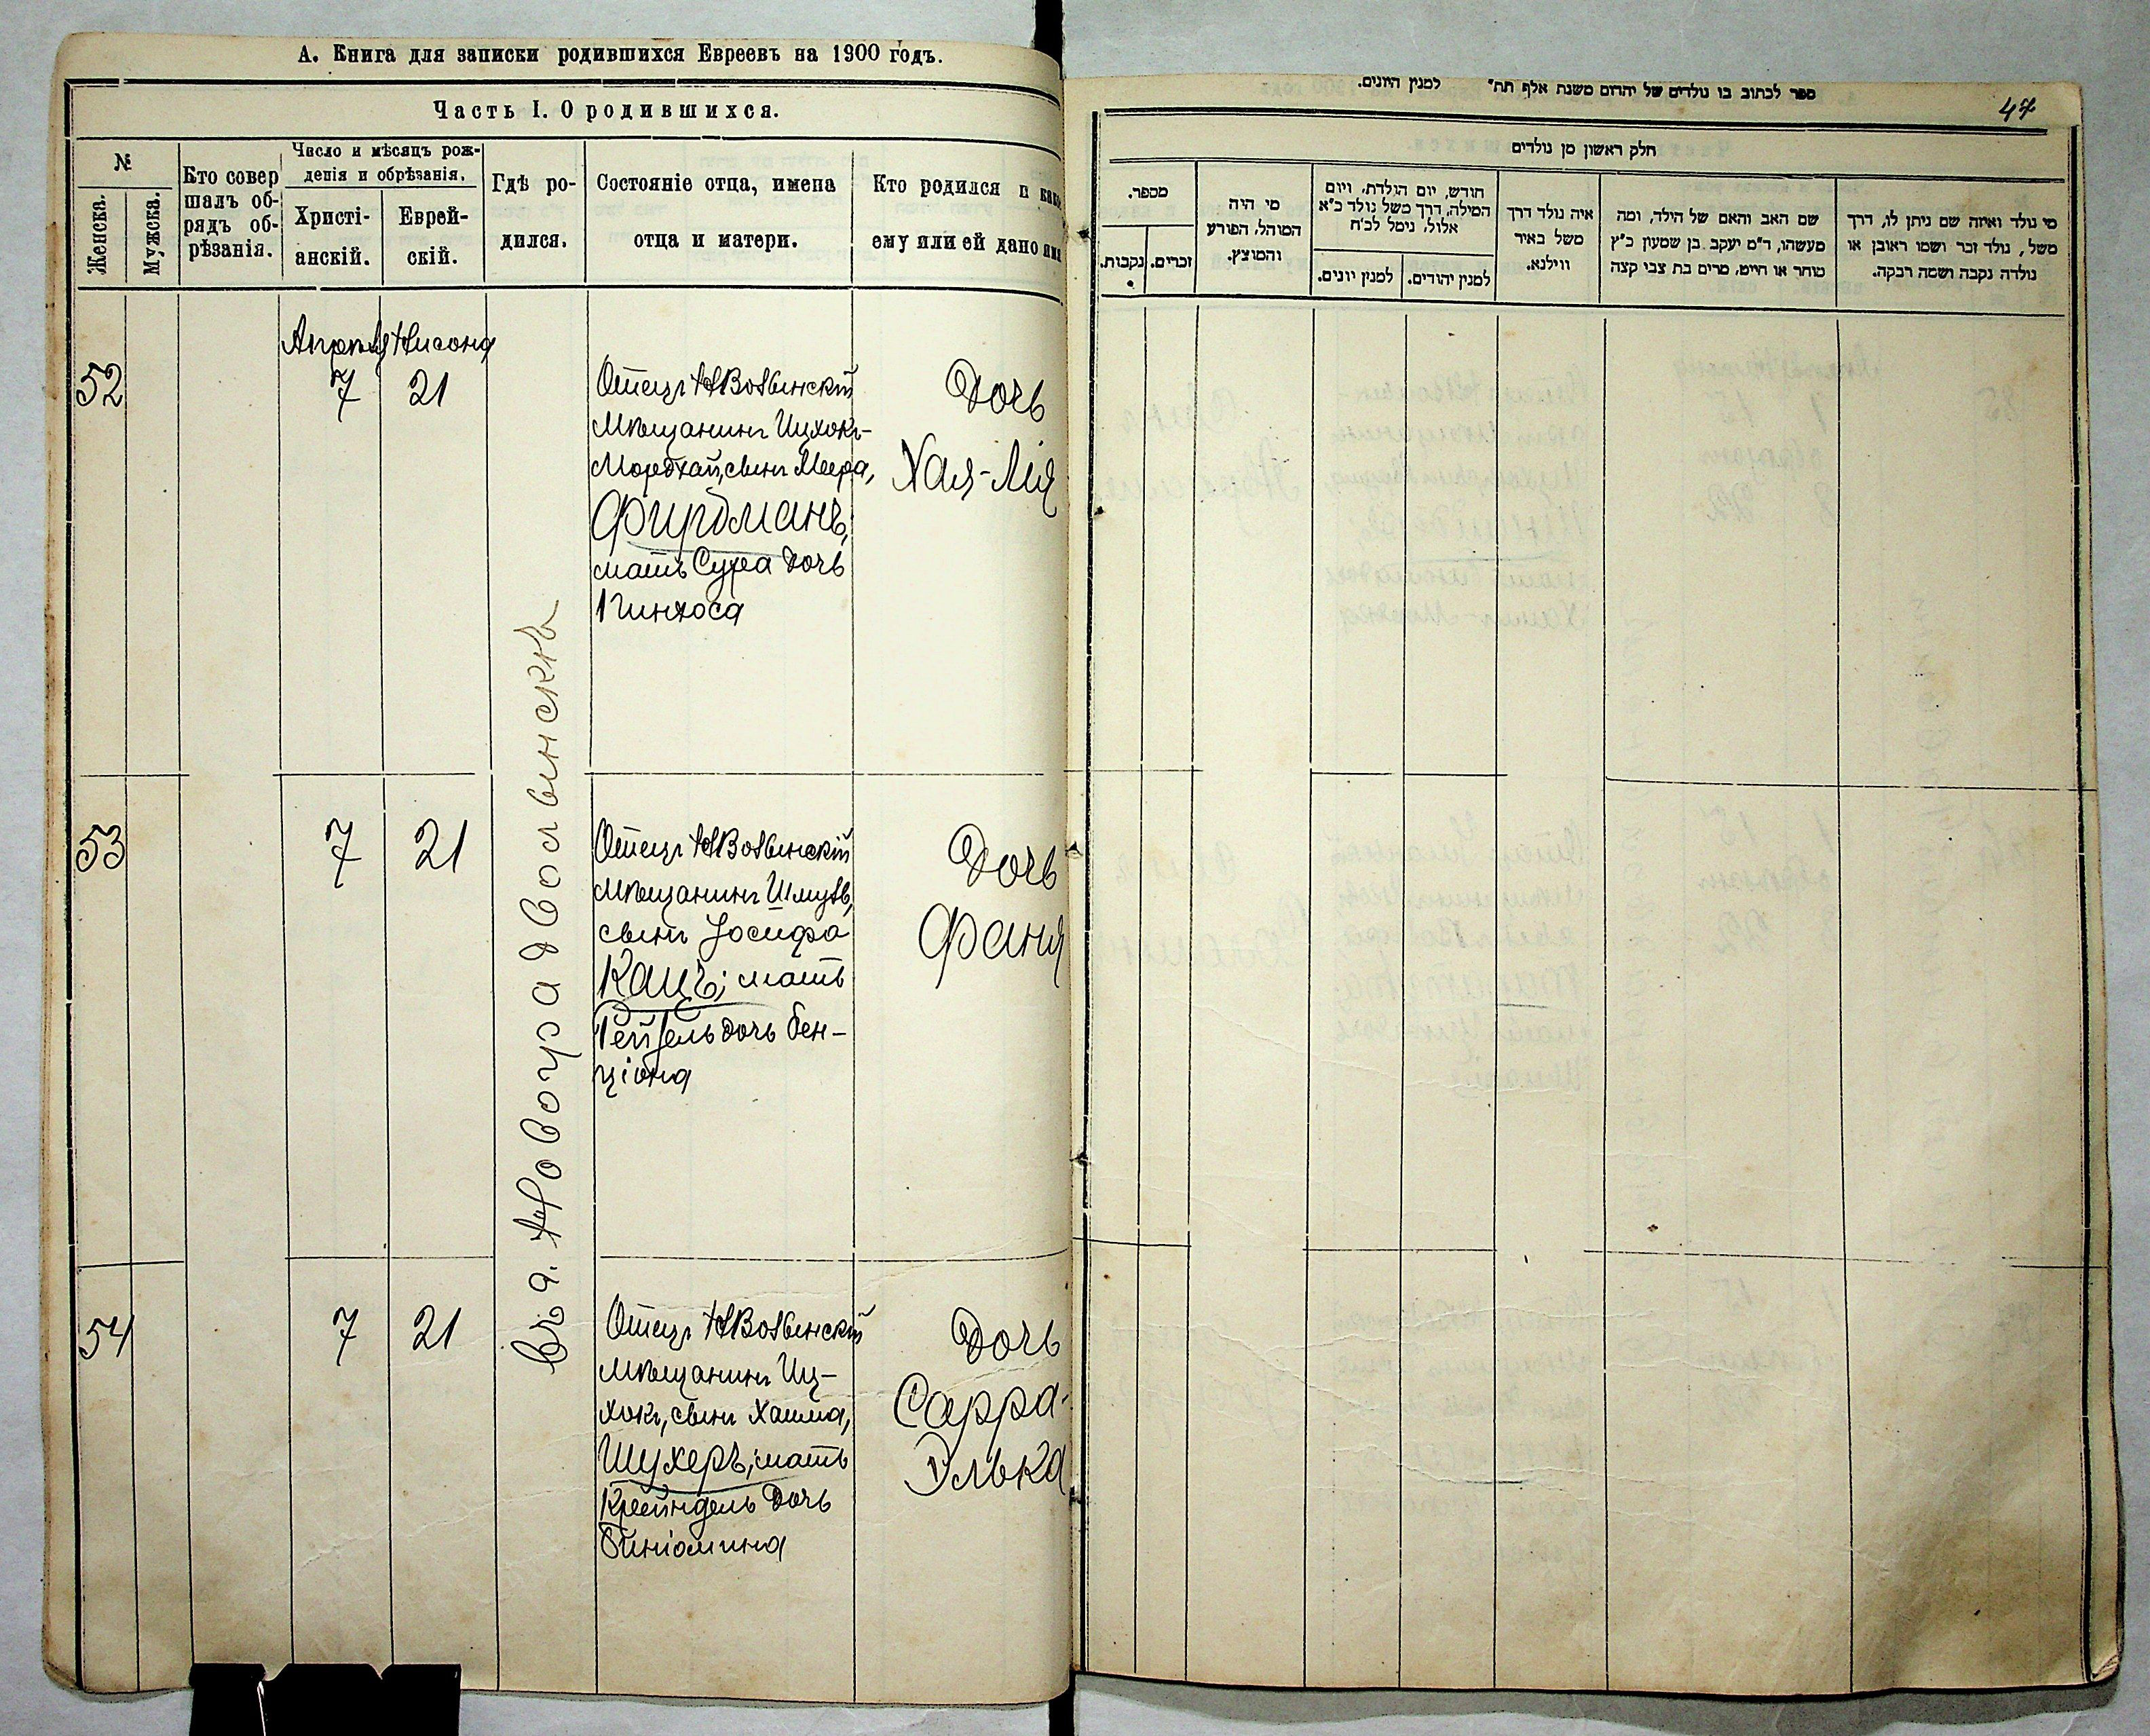 А. Книга для записки родившихся Евреевъ на 1900 годъ.
Часть I. О родившихся.
№
Женска.
Мужска.
Кто совер
шалъ об-
рядъ об-
рѣзанія.
Число и мѣсяцъ рож-
денія и обрѣзанія.
Христі-
анскій.
Еврей-
скій.
Гдѣ ро-
дился.
Состояніе отца, имена
отца и матери.
Кто родился и како
ему или ей дано имя
Апрѣля Нисона
52
7
21
Отецъ НВолынскій
Мѣщанинъ Ицхокъ-
Мордхай, сынъ Меера,
Фурдманъ,
мать Сура дочь
Пинхоса
Дочь
Хая-Лія
Въ г. Новоградволынскѣ
53
7
21
Отецъ НВолынскій
мѣщанинъ Шмуль,
сынъ Іосифа
Кацъ; мать
Рейзель дочь Бен-
ціона
Дочь
Фаня
54
7
21
Отецъ НВолынскій
мѣщанинъ Иц-
хокъ, сынъ Хаима,
Шухеръ; мать
Крейндель дочь
Биніомина
Дочь
Сарра-
Элька
ספר לכתוב בו נולדים של יהדום משנת אלף תת״ למנין היונים.
47
חלק ראשון מן נולדים
מספר.
נקבות.
זכרים.
מי היה
המוהל, הפורע
והמוצץ.
חודש, יום הולדת, ויום
המילה, דרך משל נולד כ״א
אלול, נימל לכ״ח
למנין יונים.
למנין יהודים.
איה נולד דרך
משל באיר
ווילנא.
שם האב והאם של הילד, ומה
מעשהו, ד״מ יעקב בן שמעון כ״ץ
סוחר או חייט, מרים בת צבי קצה
מי נולד ואיזה שם ניתן לו, דרך
משל, נולד זכר ושמו ראובן או
נולדה נקבה ושמה רבקה.